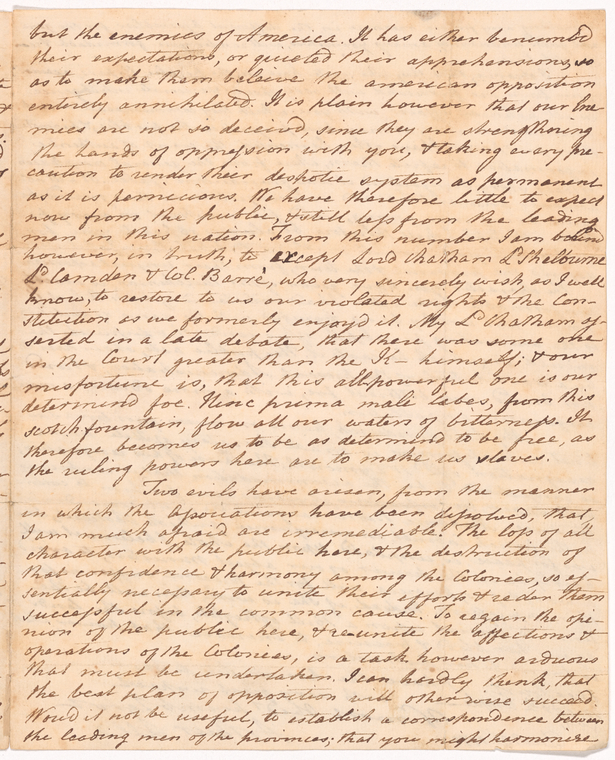 but the enemies of America. It has either benumbd
their expectations, or quieted their apprehensions, so
as to make them beleive the american opposition
entirely annihilated. It is plain however that our Ene-
mies are not so deceivd, since they are strengthning
the hands of oppression with you, & taking every pre-
caution to render their despotic system as permanent
as it is pernicious. We have therefore little to expect
now from the public, & still less from the leading
men in this nation. From this number I am bound
however, in truth, to except Lord Chatham Ld. Shelburne
Ld. Camden & Col. Barrè, who very sincerely wish, as I well
know, to restore to us our violated rights & the Con-
stitution as we formerly enjoyd it. My Ld. Chatham as-
serted in a late debate, that there was some one
in the Court greater than the K— himself; & our
misfortune is, that this allpowerful one is our
determind foe. Hinc prima mali labes, from this
scotch fountain, flow all our waters of bitterness. It
therefore becomes us to be as determind to be free, as
the ruling powers here are to make us slaves.
Two evils have arisen, from the manner
in which the associations have been dissolved, that
I am much afraid are irremediable. The loss of all
character with the public here, & the destruction of
that confidence & harmony among the Colonies, so es-
sentially necessary to unite their efforts & reder them
successful in the common cause. To regain the opi-
nion of the public here, & reunite the affections &
operations of the Colonies, is a task however arduous
that must be undertaken. I can hardly think, that
the best plan of opposition will otherwise succeed.
Would it not be useful, to establish a correspondence between
the leading men of the provinces; that you might harmonise